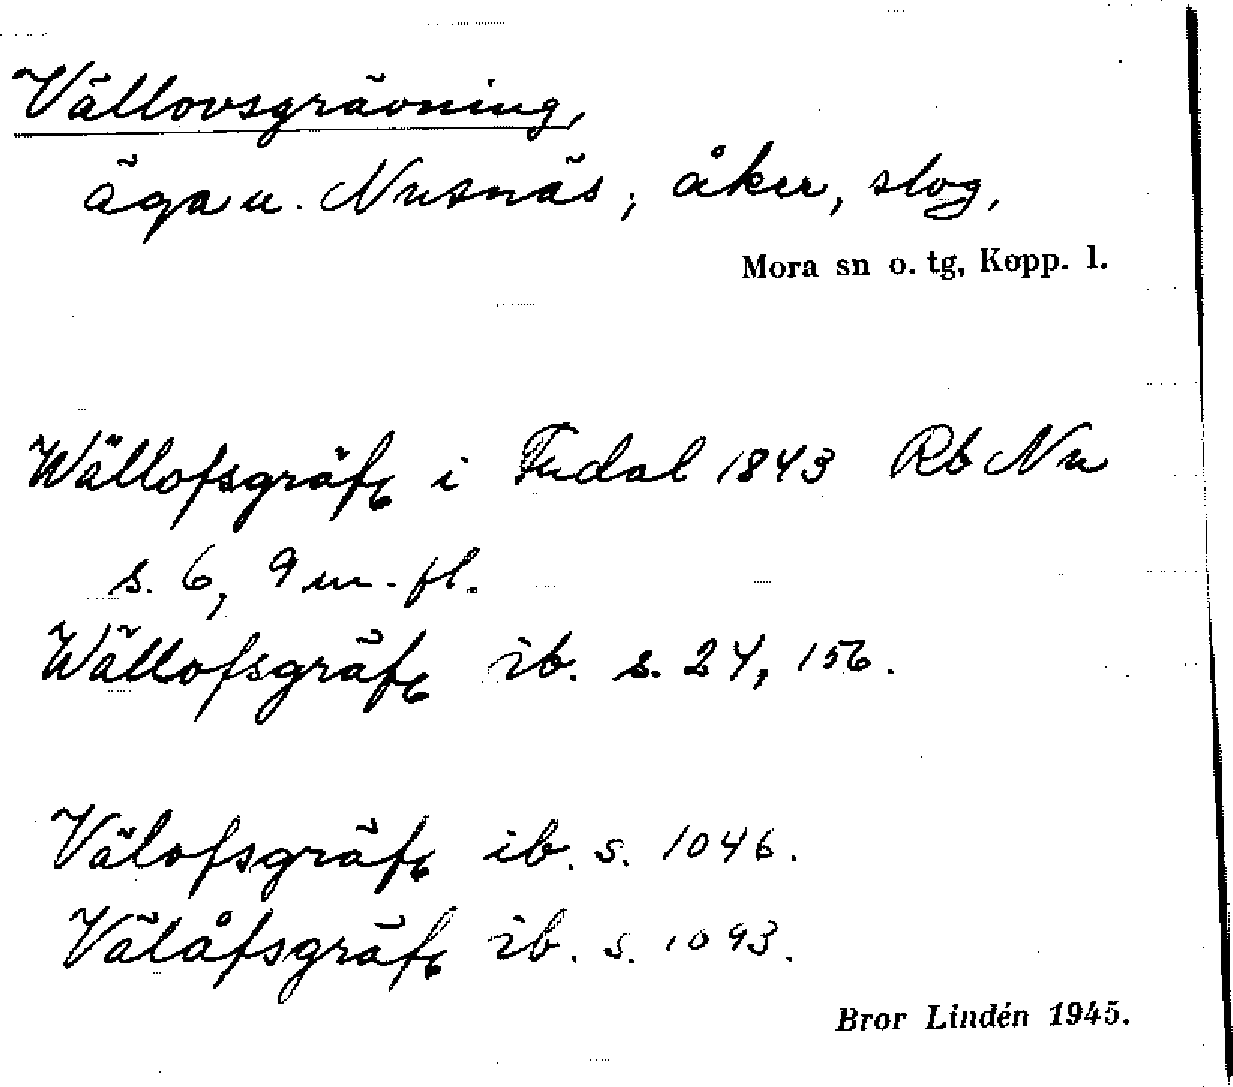 Vällovsgrävning,
äga u. Nusnäs, åker, slog,
Mora sn o. tg, Kopp. l.
Wällofsgräfg i Fudal 1843 Rb Nu
s. 6, 9 m. fl.
Wällofsgräfg ib. s. 24, 156.
Välofsgräfg ib. s. 1046.
Välåfsgräfg ib. s. 1093.
Bror Lindén 1945.